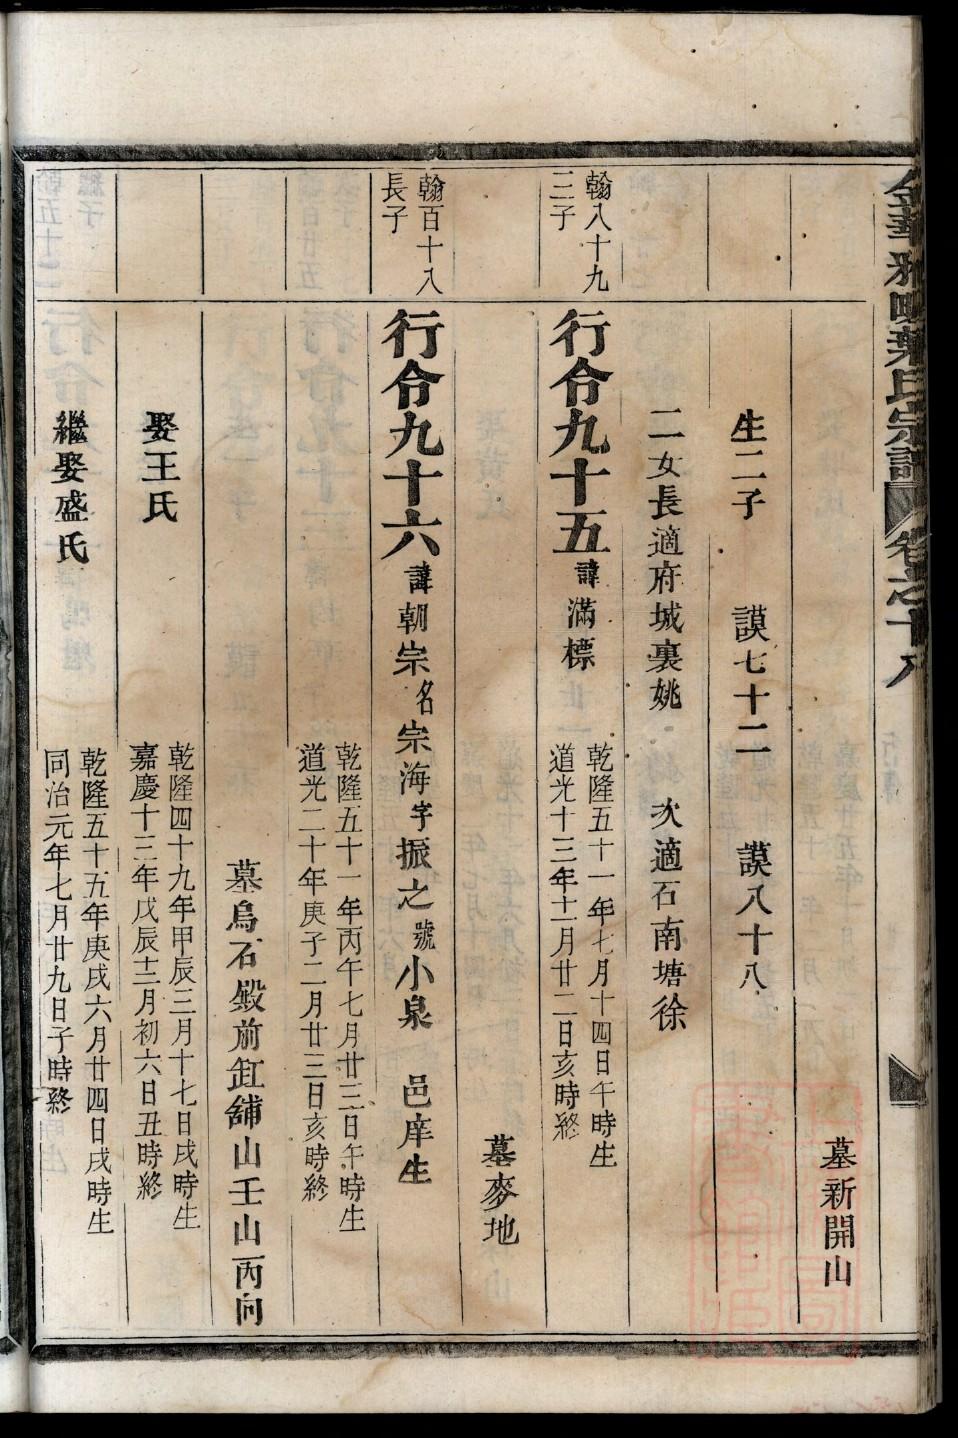 金華雅畈葉氏宗譜 卷之十八
墓新開山
生二子 謨七十二 謨八十八
二女長適府城裏姚 次適石南塘徐
翰八十九
三子
行令九十五諱滿標
乾隆五十一年七月十四日午時生
道光十三年十一月廿二日亥時終
墓麥地
翰百十八
長子
行令九十六諱朝宗名宗海字振之號小泉 邑庠生
乾隆五十一年丙午七月廿三日午時生
道光二十年庚子二月廿三日亥時終
墓烏石殿前缸舖山壬山丙向
娶王氏
乾隆四十九年甲辰三月十七日戌時生
嘉慶十三年戊辰十二月初六日丑時終
繼娶盛氏
乾隆五十五年庚戌六月廿四日戌時生
同治元年七月廿九日子時終